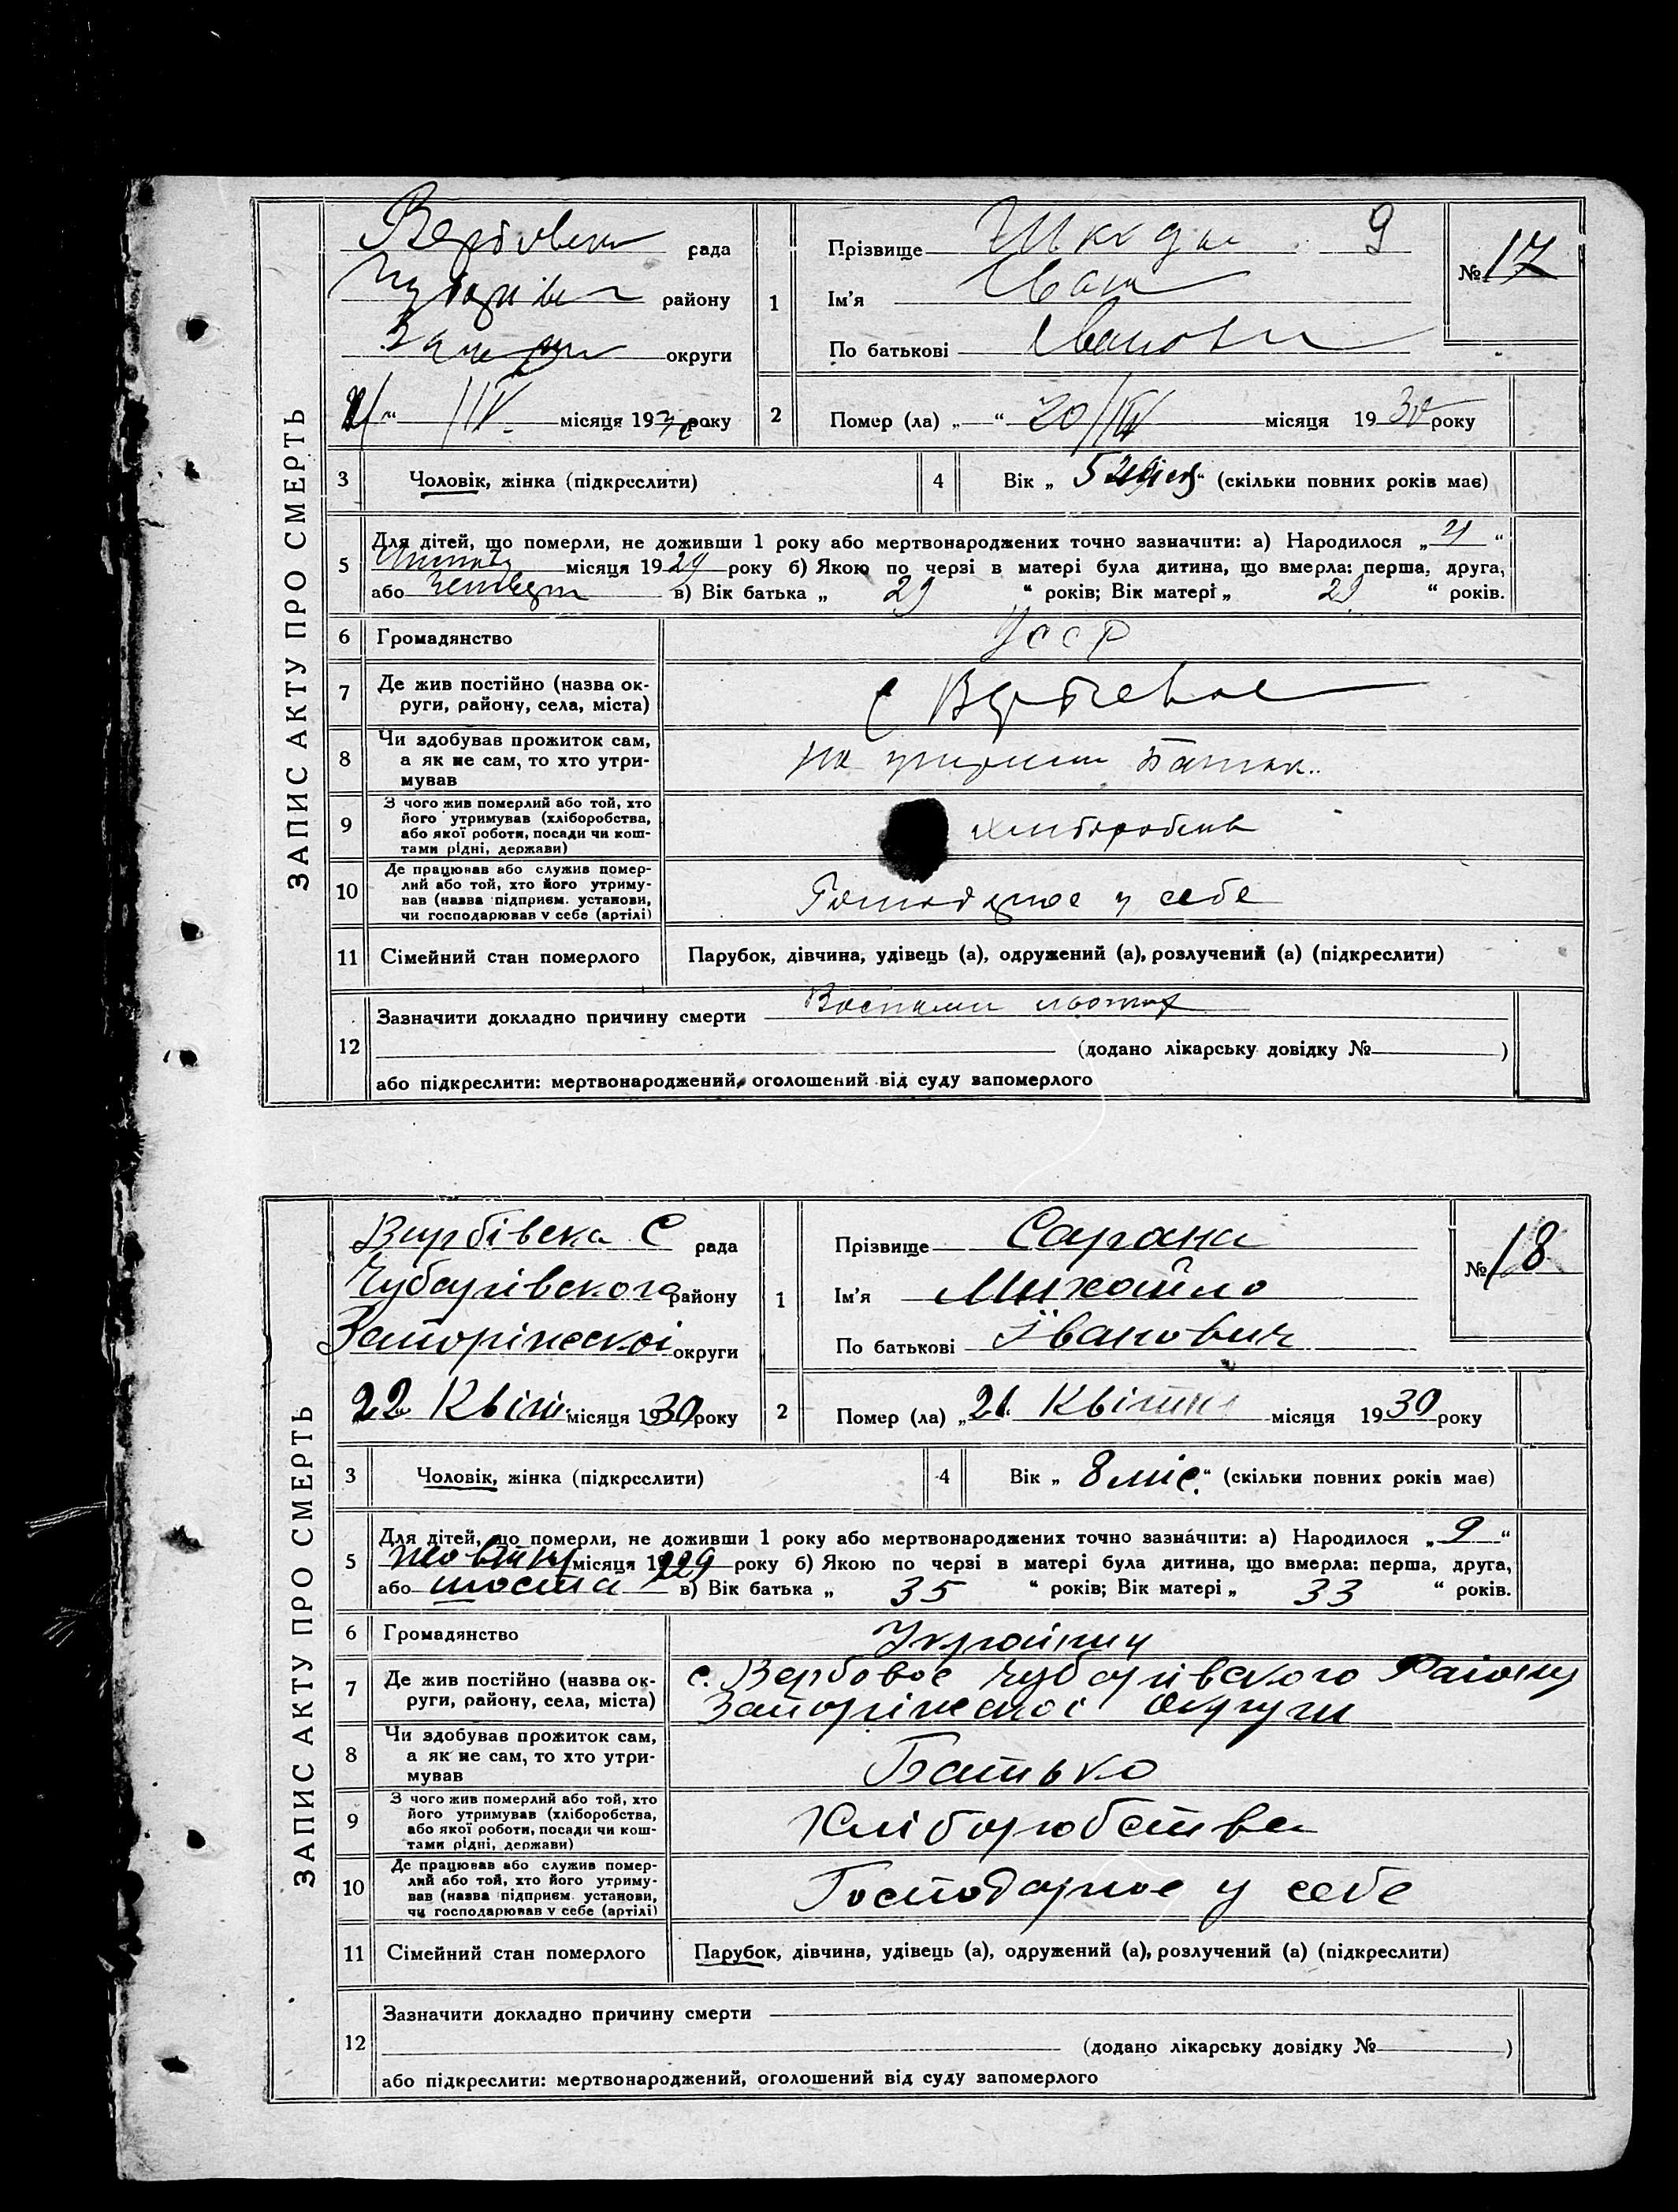 ЗАПИС АКТУ ПРО СМЕРТЬ
рада
району
округи
місяця 1930 року
1
Прізвище Шкода 9
Ім'я Иван
По батькові Иванови
№ 17
2 Помер (ла) „ “ 20/IV місяця 1930 року
3 Чоловік, жінка (підкреслити)
4 Вік „ 5 “ (скільки повних років має)
5 Для дітей, що померли, не доживши 1 року або мертвонароджених точно зазначити: а) Народилося „ “
місяця 1929 року б) Якою по черзі в матері була дитина, що вмерла: перша, друга,
або в) Вік батька „ 29 “ років; Вік матері „ 29 “ років.
6 Громадянство УССР
7 Де жив постійно (назва ок-
руги, району, села, міста)
с
8 Чи здобував прожиток сам,
а як не сам, то хто утри-
мував
на
9 З чого жив померлий або той, хто
його утримував (хліборобства,
або якої роботи, посади чи кош-
тами рідні, держави)
10 Де працював або служив помер-
лий або той, хто його утриму-
вав (назва підприєм. установи,
чи господарював у себе (артілі)
у себе
11 Сімейний стан померлого Парубок, дівчина, удівець (а), одружений (а), розлучений (а) (підкреслити)
12 Зазначити докладно причину смерти
(додано лікарську довідку № )
або підкреслити: мертвонароджений, оголошений від суду запомерлого
ЗАПИС АКТУ ПРО СМЕРТЬ
Вирбівска С рада
Чубарівского району
Запоріжскоі округи
22 Квітн місяця 1930 року
1
Прізвище Сарана
Ім'я Михайло
По батькові Іванович
№ 18
2 Помер (ла) „21 Квітня місяця 1930 року
3 Чоловік, жінка (підкреслити)
4 Вік „ 8 міс. “ (скільки повних років має)
5 Для дітей, що померли, не доживши 1 року або мертвонароджених точно зазначити: а) Народилося „ 9 “
місяця 1929 року б) Якою по черзі в матері була дитина, що вмерла: перша, друга,
або шоста в) Вік батька „ 35 “ років; Вік матері „ 33 “ років.
6 Громадянство Українец
7 Де жив постійно (назва ок-
руги, району, села, міста)
с. Вербовое Чубарівского Району
Запоріжскоі Округи
8 Чи здобував прожиток сам,
а як не сам, то хто утри-
мував
Батько
9 З чого жив померлий або той, хто
його утримував (хліборобства,
або якої роботи, посади чи кош-
тами рідні, держави)
Хліборобства
10 Де працював або служив помер-
лий або той, хто його утриму-
вав (назва підприєм. установи,
чи господарював у себе (артілі)
Господарює у себе
11 Сімейний стан померлого Парубок, дівчина, удівець (а), одружений (а), розлучений (а) (підкреслити)
12 Зазначити докладно причину смерти
(додано лікарську довідку № )
або підкреслити: мертвонароджений, оголошений від суду запомерлого